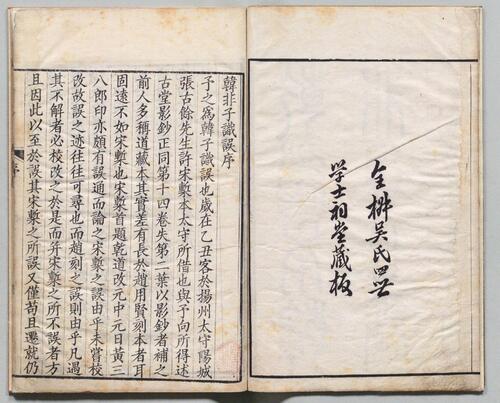 全椒吳氏四世
学士祠堂藏板
韓非子識誤序
予之爲韓子識誤也歲在乙丑客於揚州太守陽城
張古餘先生許宋槧本太守所借也與予向所得述
古堂影鈔正同第十四卷失第二葉以影鈔者補之
前人多稱道藏本其實差有長於趙用賢刻本者耳
固遠不如宋槧也宋槧首題乾道改元中元日黃三
八郎印亦頗有誤通而論之宋槧之誤由乎未嘗校
改故誤之迹往往可尋也而趙刻之誤則由乎凡遇
其不解者必校改之於是而幷宋槧之所不誤者方
且因此以至於誤其宋槧之所誤又僅苟且遷就仍
序